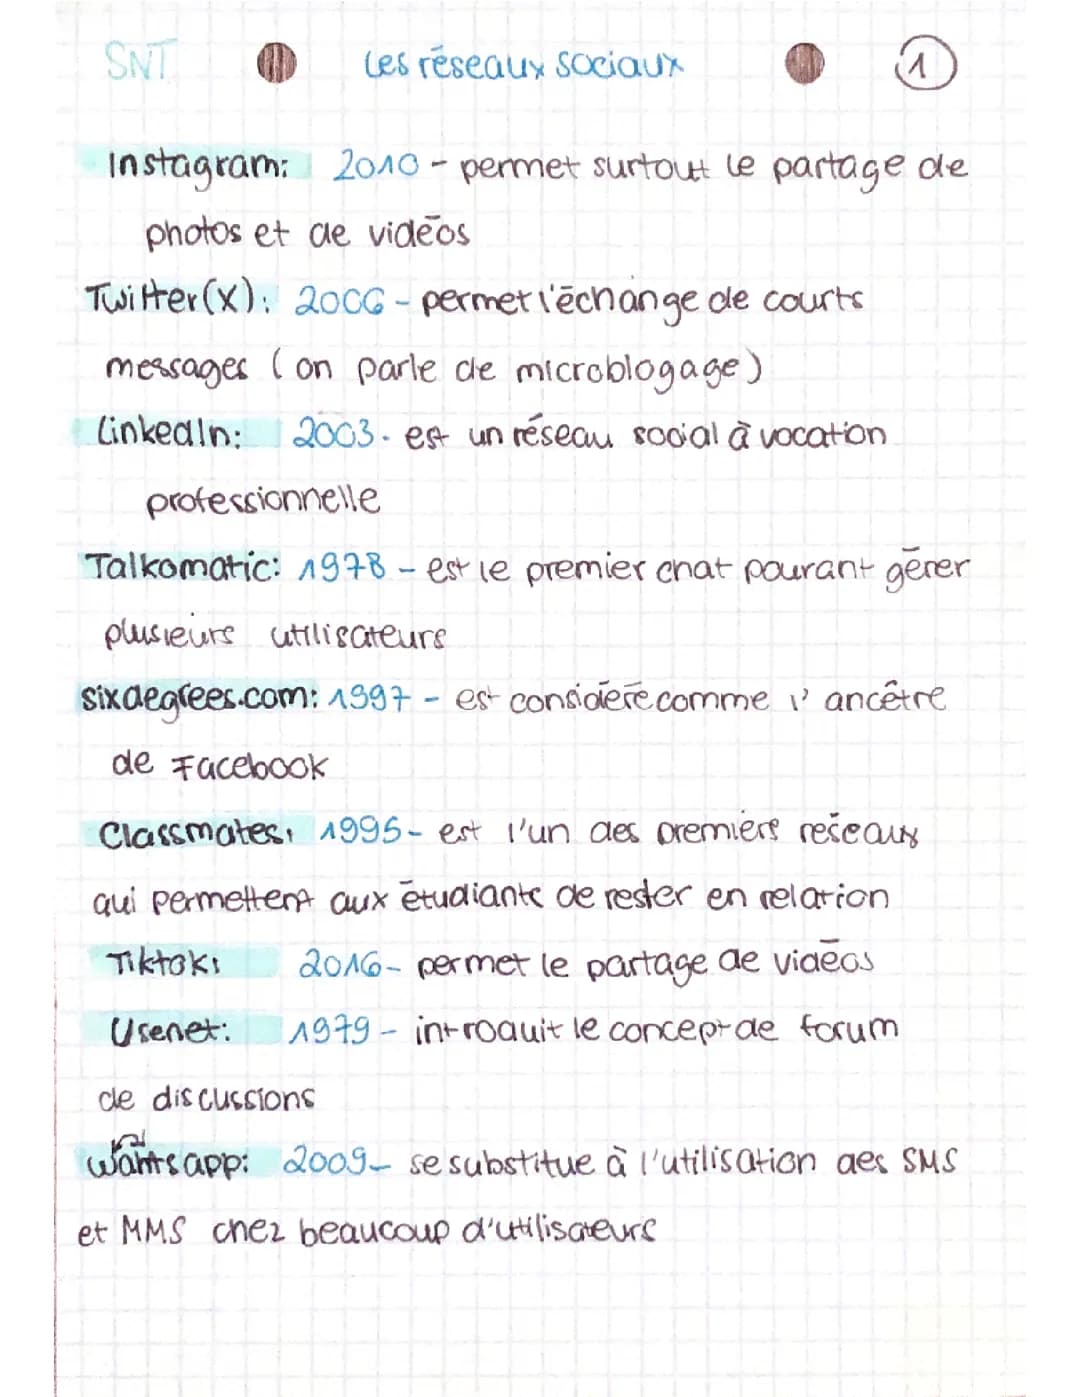 SNT Les réseaux sociaux 1
Instagram: 2010 - permet surtout le partage de
photos et de vidéos
Twitter(X): 2006 - permet l'échange de courts
messages (on parle de microblogage)
LinkedIn: 2003 - est un réseau social à vocation
professionnelle
Talkomatic: 1973 - est le premier chat pouvant gérer
plusieurs utilisateurs
sixdegrees.com: 1997 - est considéré comme l'ancêtre
de Facebook
Classmates: 1995 - est l'un des premiers réseaux
qui permettent aux étudiants de rester en relation
Tiktok: 2016 - permet le partage de vidéos
Usenet: 1979 - introduit le concept de forum
de discussions
Wahtsapp: 2009 - se substitue à l'utilisation des SMS
et MMS chez beaucoup d'utilisateurs